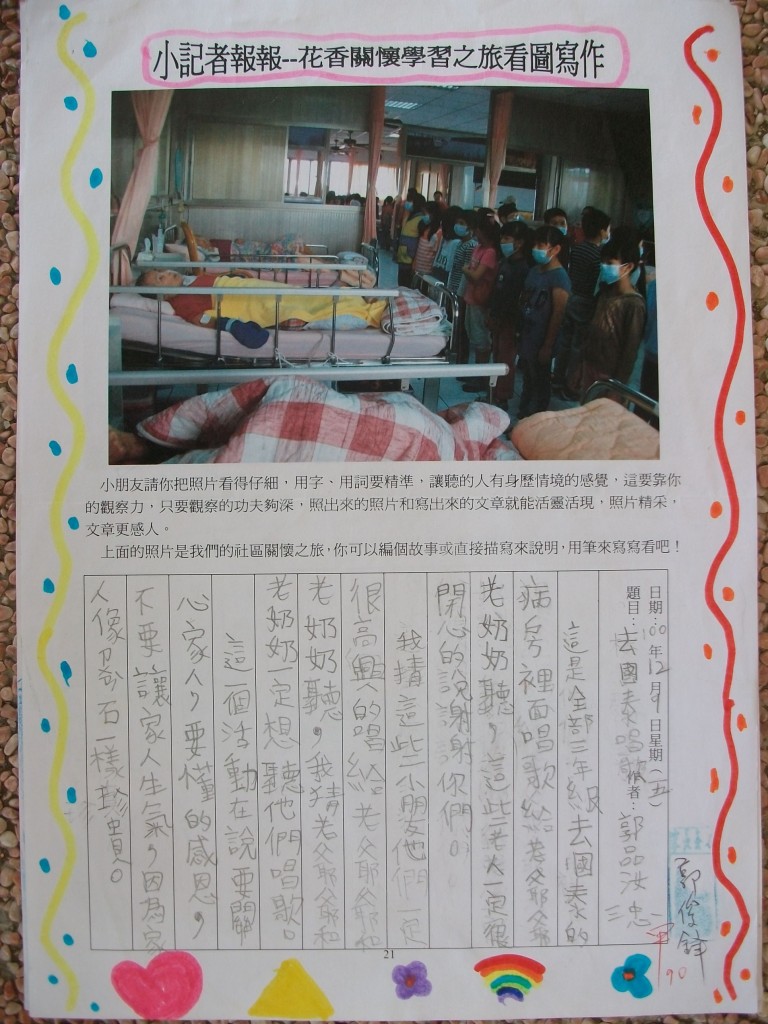 小記者報報--花香關懷學習之旅看圖寫作
小朋友請你把照片看得仔細，用字、用詞要精準，讓聽的人有身歷情境的感覺，這要靠你
的觀察力，只要觀察的功夫夠深，照出來的照片和寫出來的文章就能活靈活現，照片精采，
文章更感人。
上面的照片是我們的社區關懷之旅，你可以編個故事或直接描寫來說明，用筆來寫寫看吧！
日期：100年12月9日星期（五）
題目：去國泰唱歌 作者：郭品汝 三忠
這是全部三年級去國泰的
病房裡面唱歌給老爺爺
老奶奶聽，這些老人一定很
開心的說謝謝你們。
我猜這些小朋友他們一定
很高興的唱給老爺爺和
老奶奶聽，我猜老爺爺和
老奶奶一定想聽他們唱歌。
這一個活動在說要關
心家人，要懂的感恩，
不要讓家人生氣，因為家
人像寶石一樣珍貴。
甲
90
21